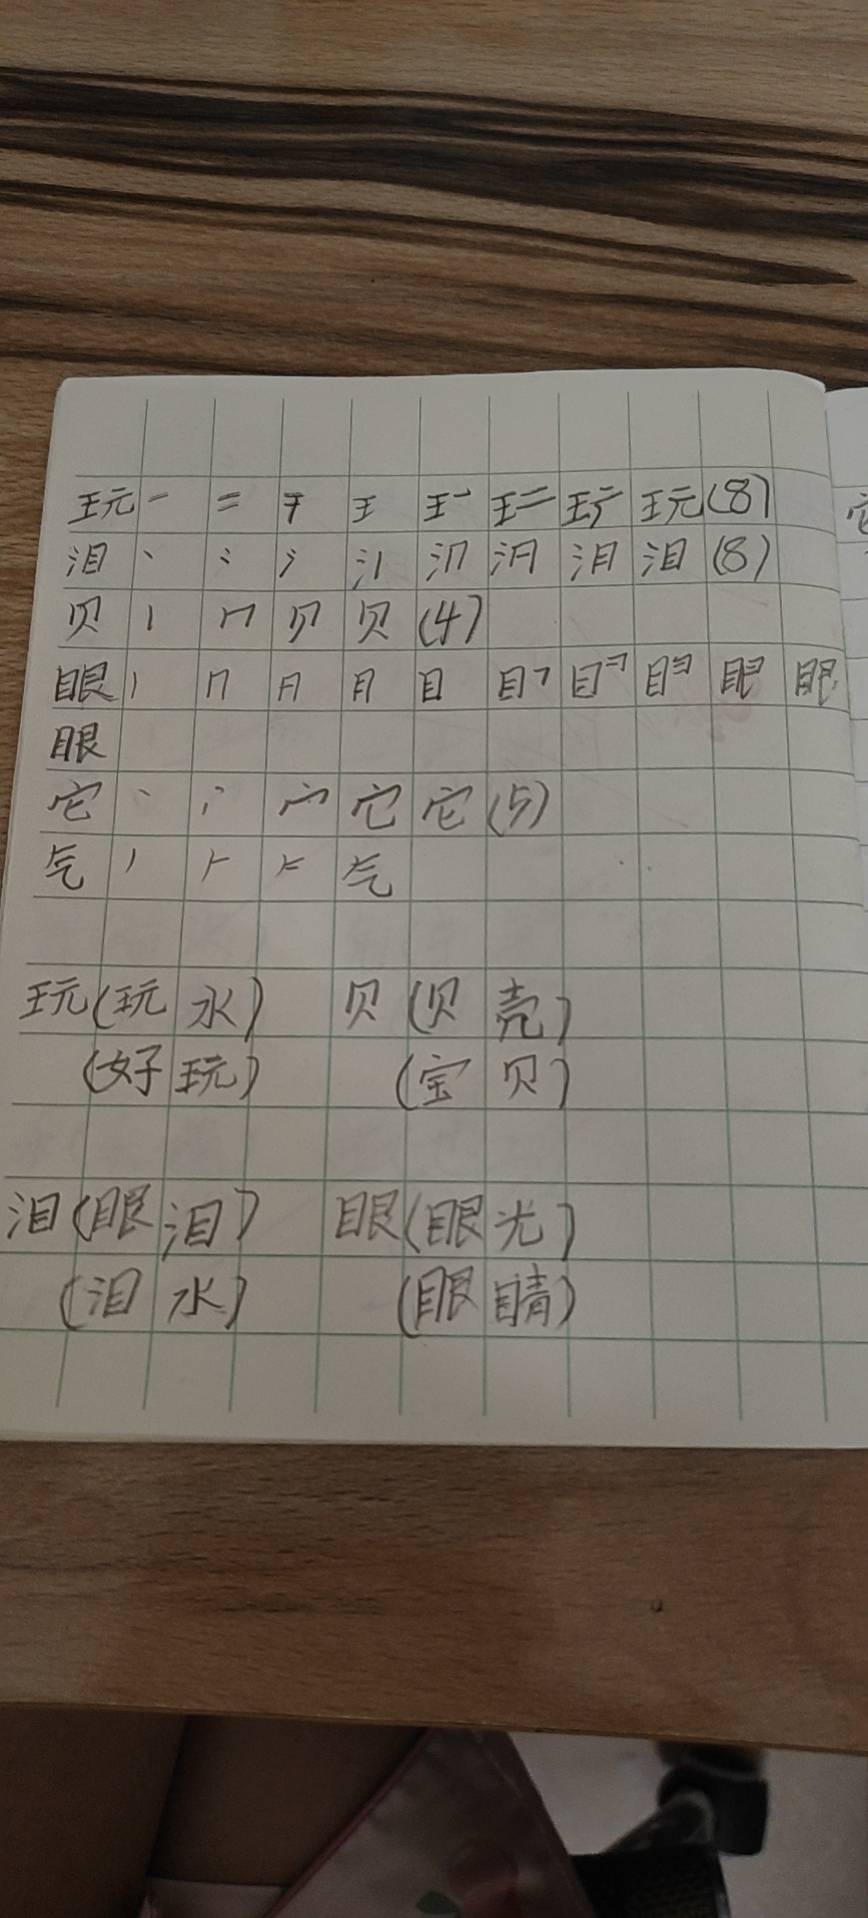 玩 一 二 千 王 王一 王二 玩 玩 (8)
泪 丶 冫 氵 氵丨 氵冂 汩 泪 泪 (8)
贝 丨 冂 贝 贝 (4)
眼 丨 冂 月 月 目 目㇕ 目彐 目彐 眼 眼
眼
它 丶 丶丶 宀 它 它 (5)
气 丿 𠂉 气
玩(玩水) 贝(贝壳)
(好玩) (宝贝)
泪(眼泪) 眼(眼光)
(泪水) (眼睛)